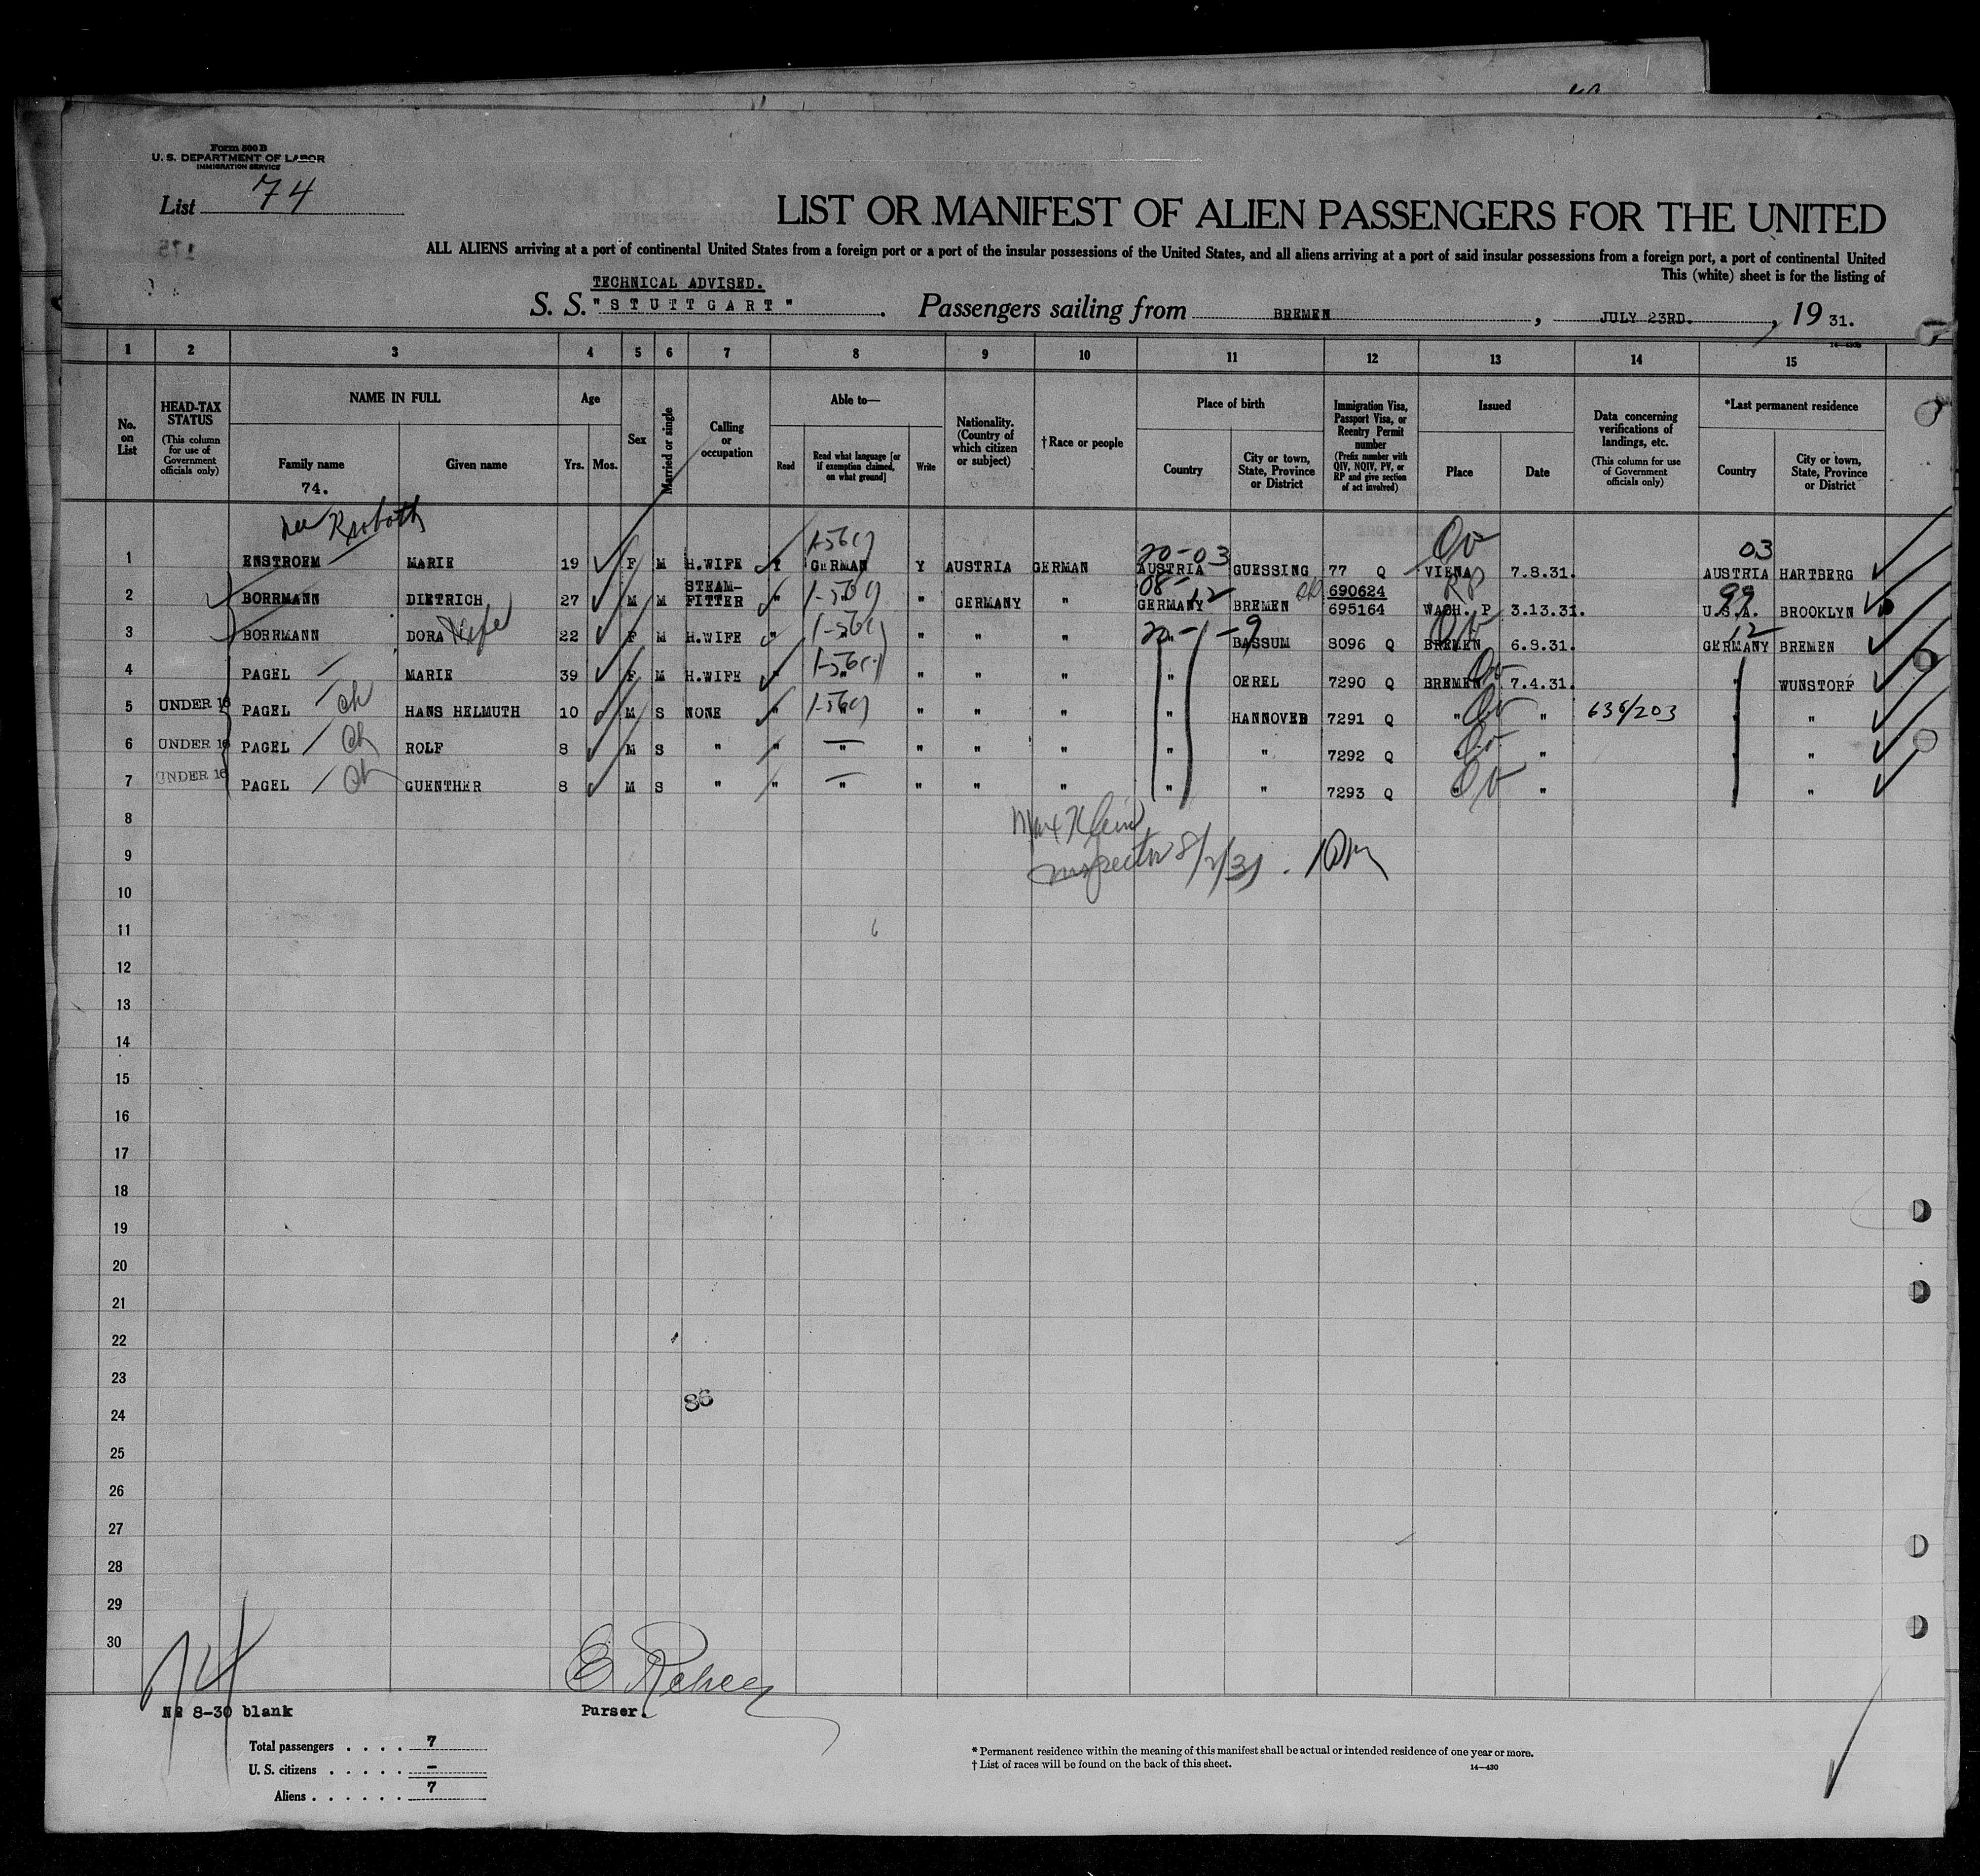 Form 500 B
U. S. DEPARTMENT OF LABOR
IMMIGRATION SERVICE
List 74
LIST OR MANIFEST OF ALIEN PASSENGERS FOR THE UNITED
175
ALL ALIENS arriving at a port of continental United States from a foreign port or a port of the insular possessions of the United States, and all aliens arriving at a port of said insular possessions from a foreign port, a port of continental United
This (white) sheet is for the listing of
TECHNICAL ADVISED.
S. S. "STUTTGART". Passengers sailing from BREMEN, JULY 23RD., 19 31.
1 2 3 4 5 6 7 8 9 10 11 12 13 14 15
No. on List
HEAD-TAX STATUS
(This column for use of Government officials only)
NAME IN FULL
Family name
74.
Given name
Age
Yrs. Mos.
Sex
Married or single
Calling or occupation
Able to—
Read
Read what language [or if exemption claimed, on what ground]
Write
Nationality. (Country of which citizen or subject)
†Race or people
Place of birth
Country
City or town, State, Province or District
Immigration Visa, Passport Visa, or Reentry Permit number
(Prefix number with QIV, NQIV, PV, or RP and give section of act involved)
Issued
Place
Date
Data concerning verifications of landings, etc.
(This column for use of Government officials only)
*Last permanent residence
Country
City or town, State, Province or District
nee
20-03 03
1 ENSTROEM MARIE 19 F M H.WIFE Y GERMAN Y AUSTRIA GERMAN AUSTRIA GUESSING 77 Q VIENA 7.8.31. AUSTRIA HARTBERG
STEAM- 08-12 690624 RP 99
2 BORRMANN DIETRICH 27 M M FITTER " " GERMANY " GERMANY BREMEN 695164 WASH. P 3.13.31. U.S.A. BROOKLYN
20-1-9 12
3 BORRMANN DORA Wife 22 F M H.WIFE " " " " " " BASSUM 8096 Q BREMEN 6.9.31. GERMANY BREMEN
4 PAGEL MARIE 39 F M H.WIFE " " " " " " OEREL 7290 Q BREMEN 7.4.31. " WUNSTORF
5 UNDER 16 PAGEL ch HANS HELMUTH 10 M S NONE " " " " " " HANNOVER 7291 Q " " 636/203 " "
6 UNDER 16 PAGEL ch ROLF 8 M S " " " " " " " " 7292 Q " " " "
7 UNDER 16 PAGEL ch GUENTHER 8 M S " " " " " " " " 7293 Q " " " "
8
Inspector 8/2/31
9
10
11
12
13
14
15
16
17
18
19
20
21
22
23
86
24
25
26
27
28
29
30
74
No 8-30 blank
Purser.
Total passengers . . . . 7
U. S. citizens . . . . . —
Aliens . . . . . . 7
* Permanent residence within the meaning of this manifest shall be actual or intended residence of one year or more.
† List of races will be found on the back of this sheet.
14—430